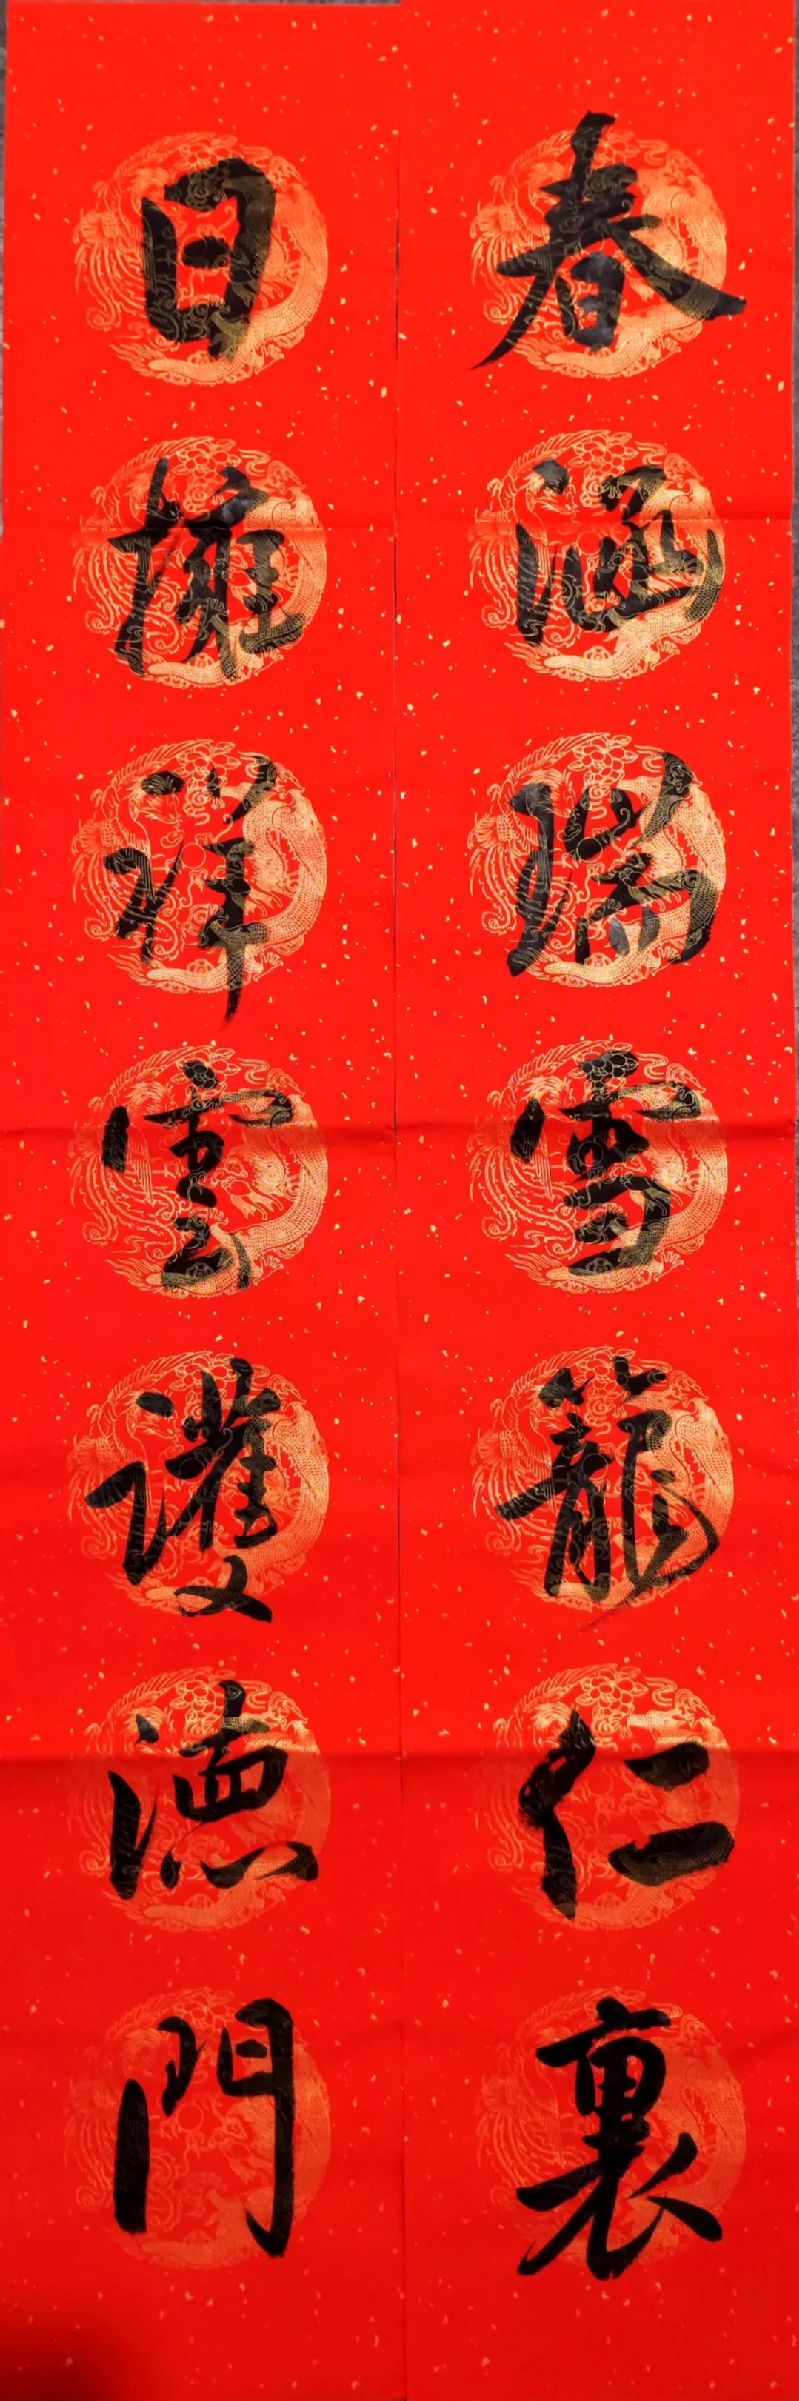 春涵瑞雪籠仁裏
日擁祥雲護德門